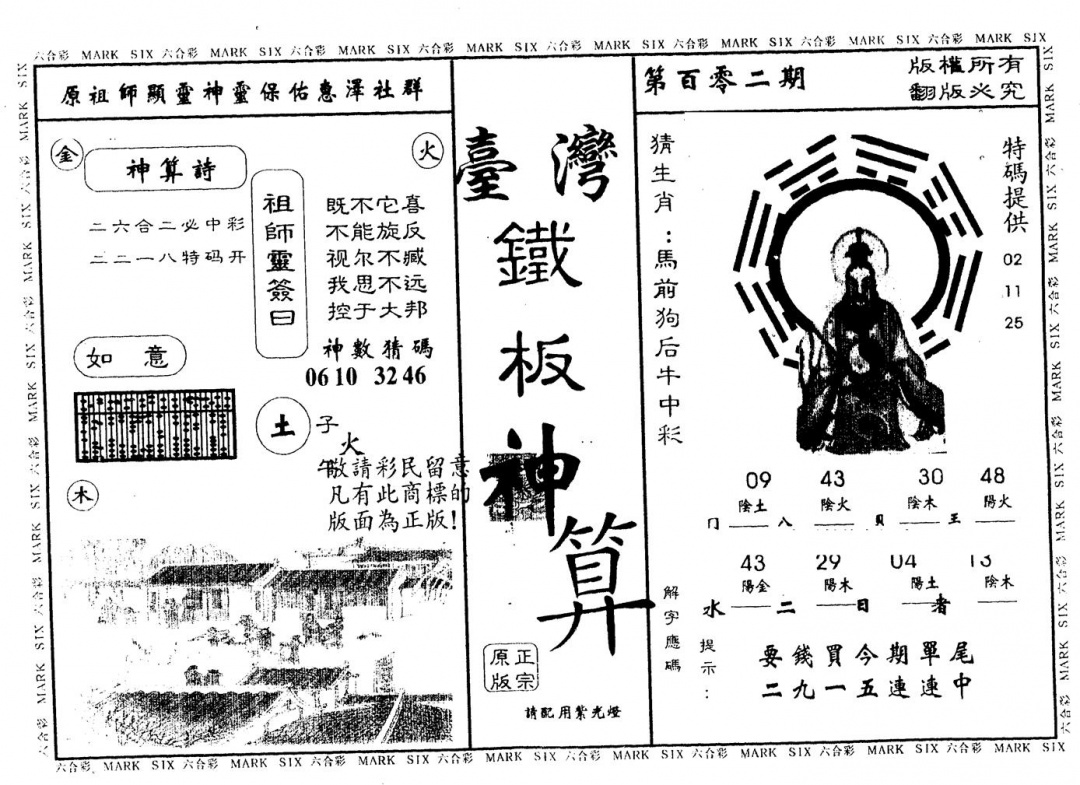 六合彩 MARK SIX 六合彩 MARK SIX 六合彩 MARK SIX 六合彩 MARK SIX 六合彩 MARK SIX 六合彩 MARK SIX 六合彩 MARK SIX 六合彩 MARK SIX
原祖師顯靈神靈保佑惠澤社群
金
火
神算詩
二六合二必中彩
二二一八特码开
祖師靈簽曰
既不它喜
不能旋反
视尔不臧
我思不远
控于大邦
神數猜碼
06 10 32 46
如意
土
子
火
午
敬請彩民留意
凡有此商標的
版面為正版!
木
臺灣
鐵
板
神
算
正宗
原版
請配用紫光燈
第百零二期
版權所有
翻版必究
猜生肖:馬前狗后牛中彩
特碼提供
02
11
25
09 43 30 48
陰土 陰火 陰木 陽火
八 貝 王
43 29 04 13
陽金 陽木 陽土 陰木
水 二 日 者
解字應碼
提示:
要錢買今期單尾
二九一五連連中
六合彩 MARK SIX 六合彩 MARK SIX 六合彩 MARK SIX 六合彩 MARK SIX 六合彩 MARK SIX 六合彩 MARK SIX 六合彩 MARK SIX 六合彩 MARK SIX